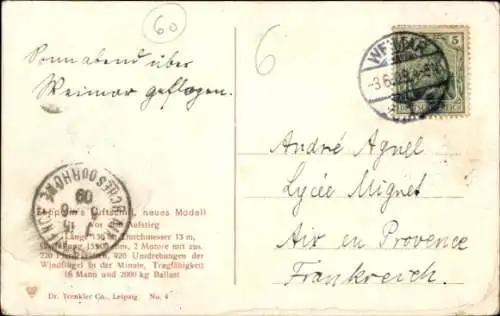 60
6
Sonnabend über
Weimar geflogen.
WEIMAR
5
DEUTSCHES REICH
André Agnel
Lycée Mignet
Aix en Provence
Frankreich.
BOUCHES DU RHONE
09
Zeppelin's Luftschiff, neues Modell
Vor dem Aufstieg
Länge 136 m, Durchmesser 13 m,
2 Motore mit zus.
220 Pferdekräften, 820 Umdrehungen der
Windflügel in der Minute, Tragfähigkeit
16 Mann und 2000 kg Ballast
Dr. Trenkler Co., Leipzig No. 4